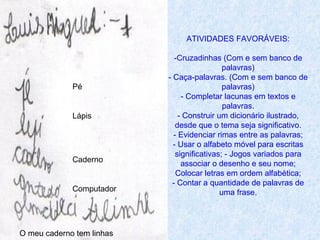 Luis Miguel:
Pé
Lápis
Caderno
Computador
O meu caderno tem linhas
ATIVIDADES FAVORÁVEIS:
-Cruzadinhas (Com e sem banco de
palavras)
- Caça-palavras. (Com e sem banco de
palavras)
- Completar lacunas em textos e
palavras.
- Construir um dicionário ilustrado,
desde que o tema seja significativo.
- Evidenciar rimas entre as palavras;
- Usar o alfabeto móvel para escritas
significativas; - Jogos variados para
associar o desenho e seu nome;
Colocar letras em ordem alfabética;
- Contar a quantidade de palavras de
uma frase.